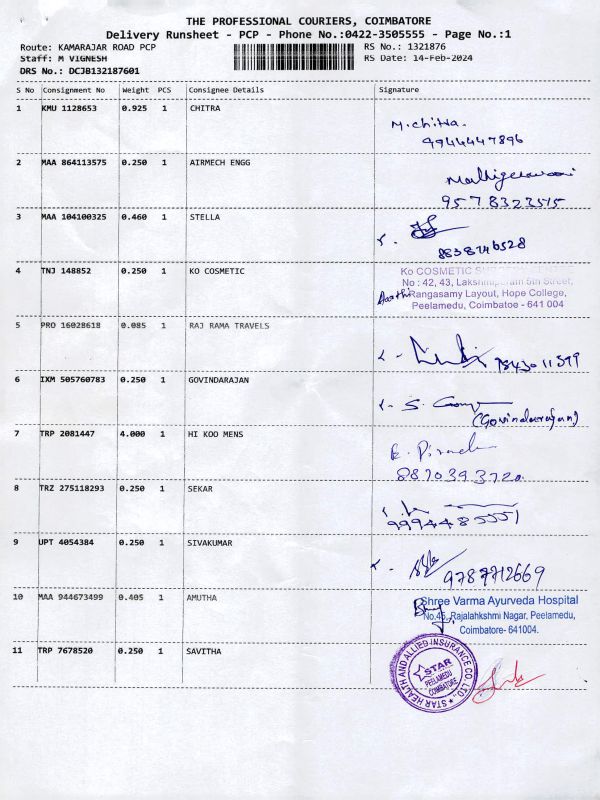 THE PROFESSIONAL COURIERS, COIMBATORE
Delivery Runsheet - PCP - Phone No.:0422-3505555 - Page No.:1
Route: KAMARAJAR ROAD PCP
Staff: M VIGNESH
DRS No.: DCJB132187601
RS No.: 1321876
RS Date: 14-Feb-2024
S No Consignment No Weight PCS Consignee Details Signature
1 KMU 1128653 0.925 1 CHITRA
M.chitra.
9944447896
2 MAA 864113575 0.250 1 AIRMECH ENGG
9578323515
3 MAA 104100325 0.460 1 STELLA
8838746528
4 TNJ 148852 0.250 1 KO COSMETIC
Ko COSMETIC
No : 42, 43, 5th Street,
Rangasamy Layout, Hope College,
Peelamedu, Coimbatoe - 641 004
5 PRO 16028618 0.085 1 RAJ RAMA TRAVELS
6 IXM 505760783 0.250 1 GOVINDARAJAN
(Govindarajan)
7 TRP 2081447 4.000 1 HI KOO MENS
8870393720
8 TRZ 275118293 0.250 1 SEKAR
9994485551
9 UPT 4054384 0.250 1 SIVAKUMAR
9787712669
10 MAA 944673499 0.405 1 AMUTHA
Shree Varma Ayurveda Hospital
Rajalahkshmi Nagar, Peelamedu,
Coimbatore- 641004.
11 TRP 7678520 0.250 1 SAVITHA
STAR HEALTH AND ALLIED INSURANCE CO. LTD.
STAR
PEELAMEDU
COIMBATORE